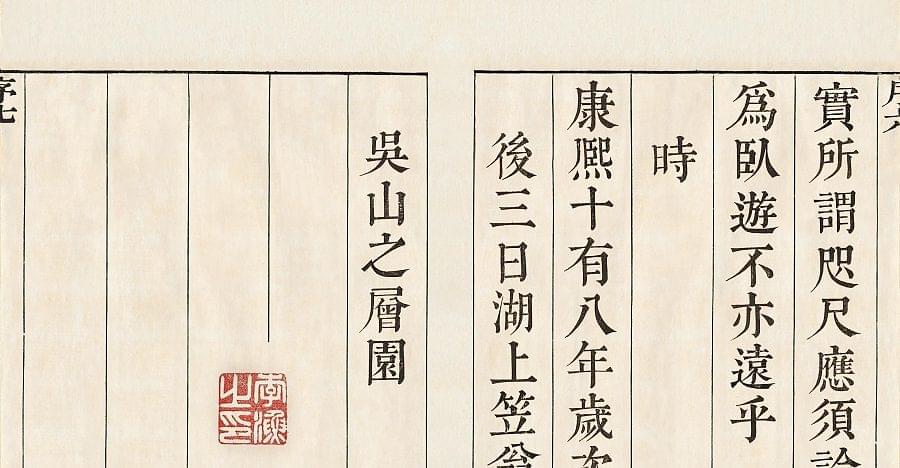 序六
實所謂咫尺應須論
爲臥遊不亦遠乎
時
康熙十有八年歲次
後三日湖上笠翁
吳山之層園
李漁之印
序七